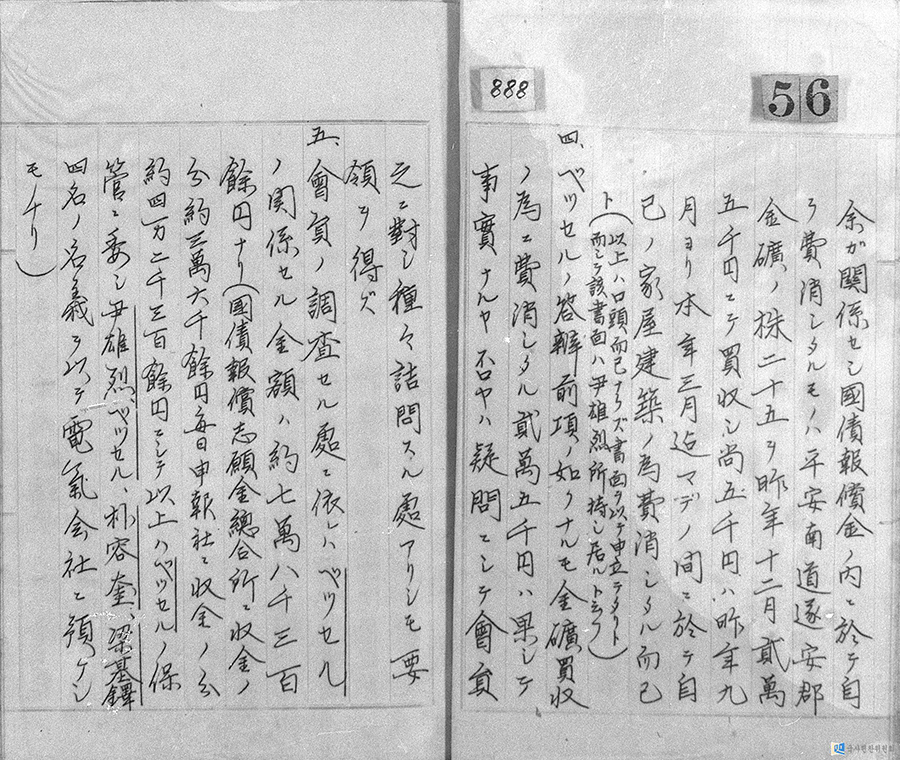 56
余ガ関係セシ國債報償金ノ内ニ於テ自
ラ費消シタルモノハ平安南道遂安郡
金礦ノ株二十五ヲ昨年十二月貳萬
五千円ニテ買收シ尚五千円ハ昨年九
月ヨリ本年三月迠マデノ間ニ於テ自
己ノ家屋建築ノ為費消シタル而已
ト(以上ハ口頭而已ナラズ書面ヲ以テ申立テタリト
而シテ該書面ハ尹雄烈所持シ居ルト云フ)
四、ベツセルノ答辨前項ノ如クナルモ金礦買收
ノ為ニ費消シタル貳萬五千円ハ果シテ
事實ナルヤ否ヤハ疑問ニシテ會員
888
之ニ對シ種々詰問スル處アリシモ要
領ヲ得ズ
五、會員ノ調査セル處ニ依レハベツセル
ノ関係セル金額ハ約七萬八千三百
餘円ナリ(國債報償志願金總合所ニ收金ノ
分約三萬六千餘円毎日申報社ニ收金ノ分
約四万二千三百餘円ニシテ以上ハベツセルノ保
管ニ委シ尹雄烈、ベツセル、朴容奎、梁基鐸
四名ノ名義ヲ以テ電氣会社ニ預ケシ
モノナリ)
국사편찬위원회